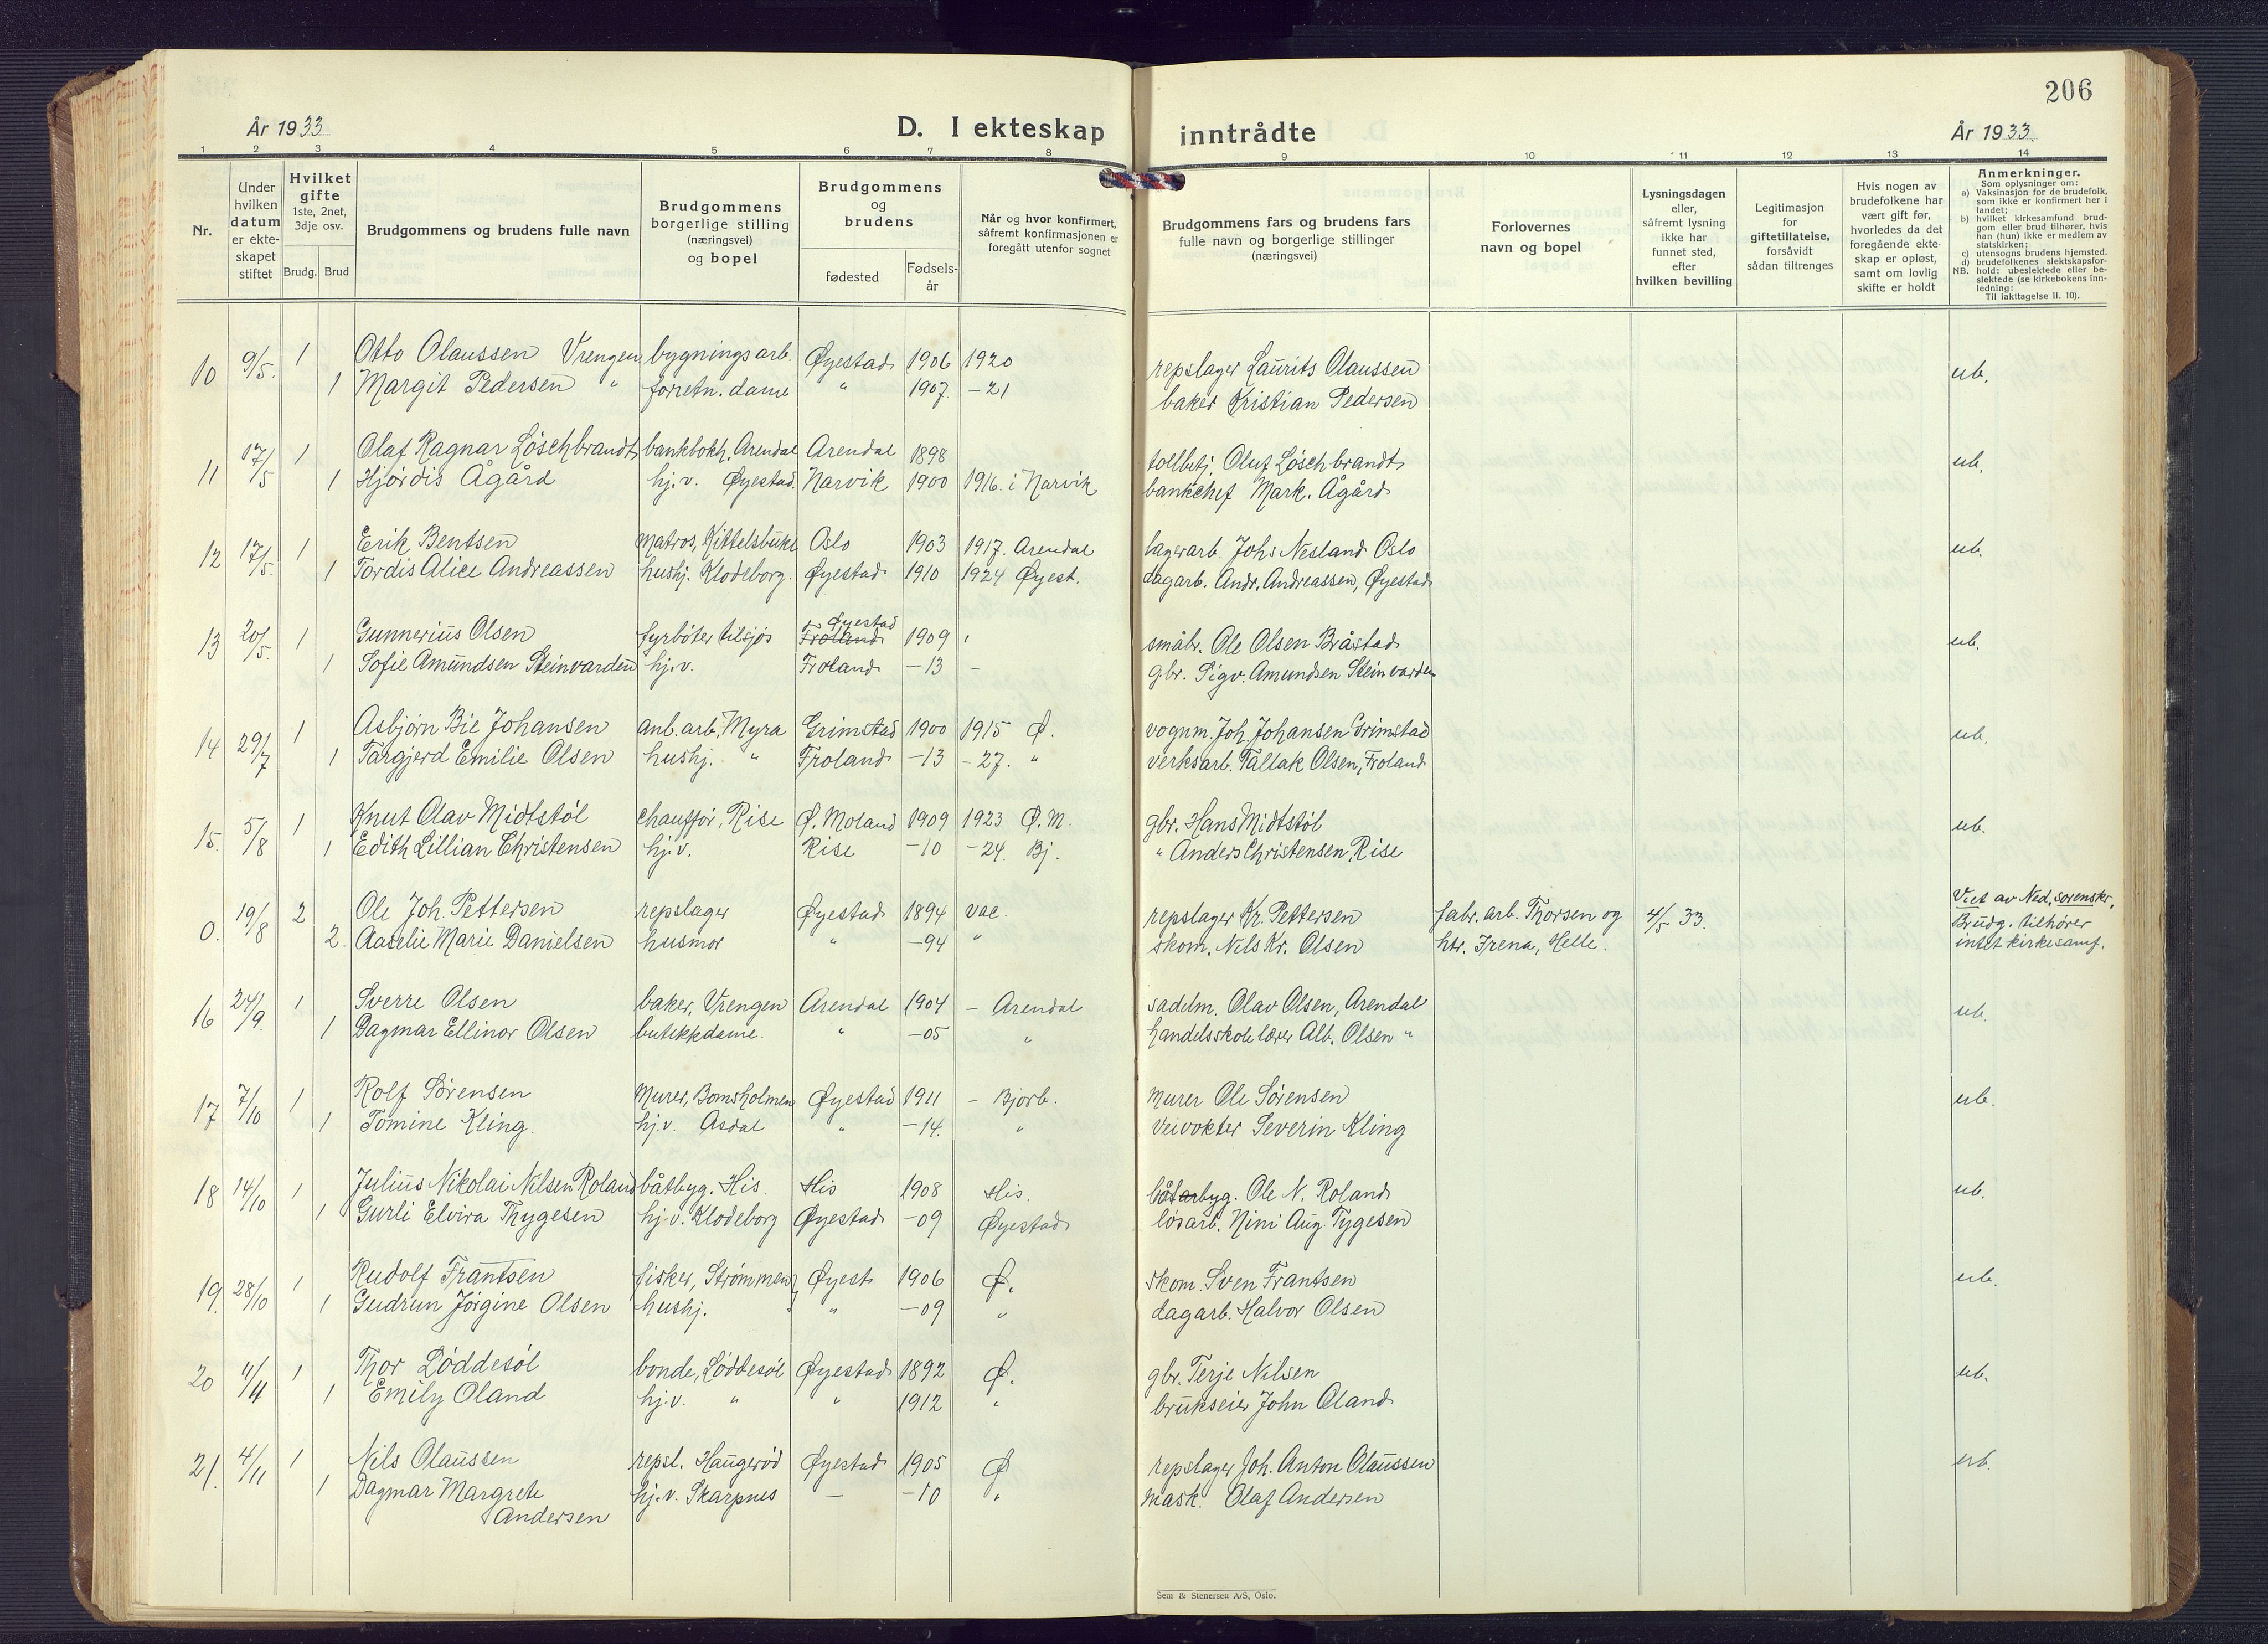 206
År 1933
D. I ekteskap inntrådte
År 1933.
1 2 3 4 5 6 7 8 9 10 11 12 13 14
Nr.
Under hvilken datum er ekteskapet stiftet
Hvilket gifte
1ste, 2net, 3dje osv.
Brudg. Brud
Brudgommens og brudens fulle navn
Brudgommens borgerlige stilling (næringsvei) og bopel
Brudgommens og brudens
fødested
Fødselsår
Når og hvor konfirmert, såfremt konfirmasjonen er foregått utenfor sognet
Brudgommens fars og brudens fars fulle navn og borgerlige stillinger (næringsvei)
Forlovernes navn og bopel
Lysningsdagen eller, såfremt lysning ikke har funnet sted, efter hvilken bevilling
Legitimasjon for giftetillatelse, forsåvidt sådan tiltrenges
Hvis nogen av brudefolkene har vært gift før, hvorledes da det foregående ekteskap er opløst, samt om lovlig skifte er holdt
Anmerkninger.
Som oplysninger om:
a) Vaksinasjon for de brudefolk, som ikke er konfirmert her i landet;
b) hvilket kirkesamfund brudgom eller brud tilhører, hvis han (hun) ikke er medlem av statskirken;
c) utensogns brudens hjemsted.
d) brudefolkenes slektskapsforhold: ubeslektede eller beslektede (se kirkebokens innledning:
NB.
Til iakttagelse II. 10).
10 9/5. 1 Otto Olaussen Vrengen bygningsarb. Øyestad 1906 1920 repslager Laurits Olaussen ub.
1 Margit Pedersen " forretn. dame " 1907. -21 baker Kristian Pedersen
11 17/5 1 Olaf Ragnar Löschbrandt bankbokh, Arendal Arendal 1898 tollbetj. Oluf Löschbrandt ub.
1 Hjørdis Ågård hj.v. Øyestad. Narvik 1900 1916. i Narvik bankchef Mark. Ågård
12 17/5. 1 Erik Bentsen matros, Kittelsbukt Oslo 1903 1917. Arendal lagerarb. Johs Nesland Oslo ub.
1 Tordis Alice Andreassen hushj. Klodeborg. Øyestad 1910 1924 Øyest. dagarb. Andr. Andreassen, Øyestad
13 20/5. 1 Gunnerius Olsen fyrbøter tilsjøs Froland Øyestad 1909 småbr. Ole Olsen Bråstad ub.
1 Sofie Amundsen Steinvarden hj.v. Froland -13 - gbr. Sigv. Amundsen Steinvarden
14 29/7 1 Asbjørn Bie Johansen anl. arb. Myra Grimstad 1900 1915 Ø. vognm. Joh. Johansen Grimstad ub.
1 Targjerd Emilie Olsen hushj. " Froland -13 -27. " verksarb. Tallak Olsen, Froland
15. 5/8 1 Knut Olav Midtstøl chauffør, Rise Ø. Moland 1909 1923 Ø.M. gbr. Hans Midtstøl ub.
1 Edith Lillian Christensen hj.v. Rise -10 -24. Bj. " Anders Christensen, Rise
0. 19/8 2 Ole Joh. Pettersen repslager Øyestad 1894 vac. repslager Kr. Pettersen fabr. arb. Thorsen og 4/5 33. Viet av Ned. sorenskr.
2. Aaselie Marie Danielsen husmor " -94 " skom. Nils Kr. Olsen htr. Irena, Helle. Brudg. tilhører
intet kirkesamf.
16 24/9. 1 Sverre Olsen baker, Vrengen Arendal 1904 - Arendal sadelm. Olav Olsen, Arendal ub.
1 Dagmar Ellinor Olsen butikkdame. " -05 " handelsskolelærer Alb. Olsen "
17 7/10 1 Rolf Sørensen Murer, Bomsholmen Øyestad 1911 - Bjorb. Murer Ole Sørensen ub.
1 Tomine Kling hj.v. Asdal " -14. " Veivokter Severin Kling
18 14/10 1 Julius Nikolai Nilsen Roland båtbyg. His His 1908 His. båtarbyg. Ole N. Roland ub.
1 Gurli Elvira Thygesen hj.v. Klodeborg Øyestad -09 Øyestad løsarb. Nini Aug. Tygesen
19. 28/10 1 Rudolf Frantsen fisker, Strømmen Øyest 1906 Ø. skom. Sven Frantsen ub.
1 Gudrun Jørgine Olsen hushj. " -09 " dagarb. Halvor Olsen
20 4/11 1 Thor Løddesøl bonde, Løddesøl Øyestad 1892 Ø. gbr. Terje Nilsen ub.
1 Emily Oland hj.v. " " 1912 " brukseier John Oland
21. 4/11 1 Nils Olaussen repsl. Haugerød Øyestad 1905 Ø repslager Joh. Anton Olaussen ub.
1 Dagmar Margrete hj.v. Skarpnes - -10 " Mask. Olaf Andersen
Andersen
Sem & Stenersen A/S, Oslo.